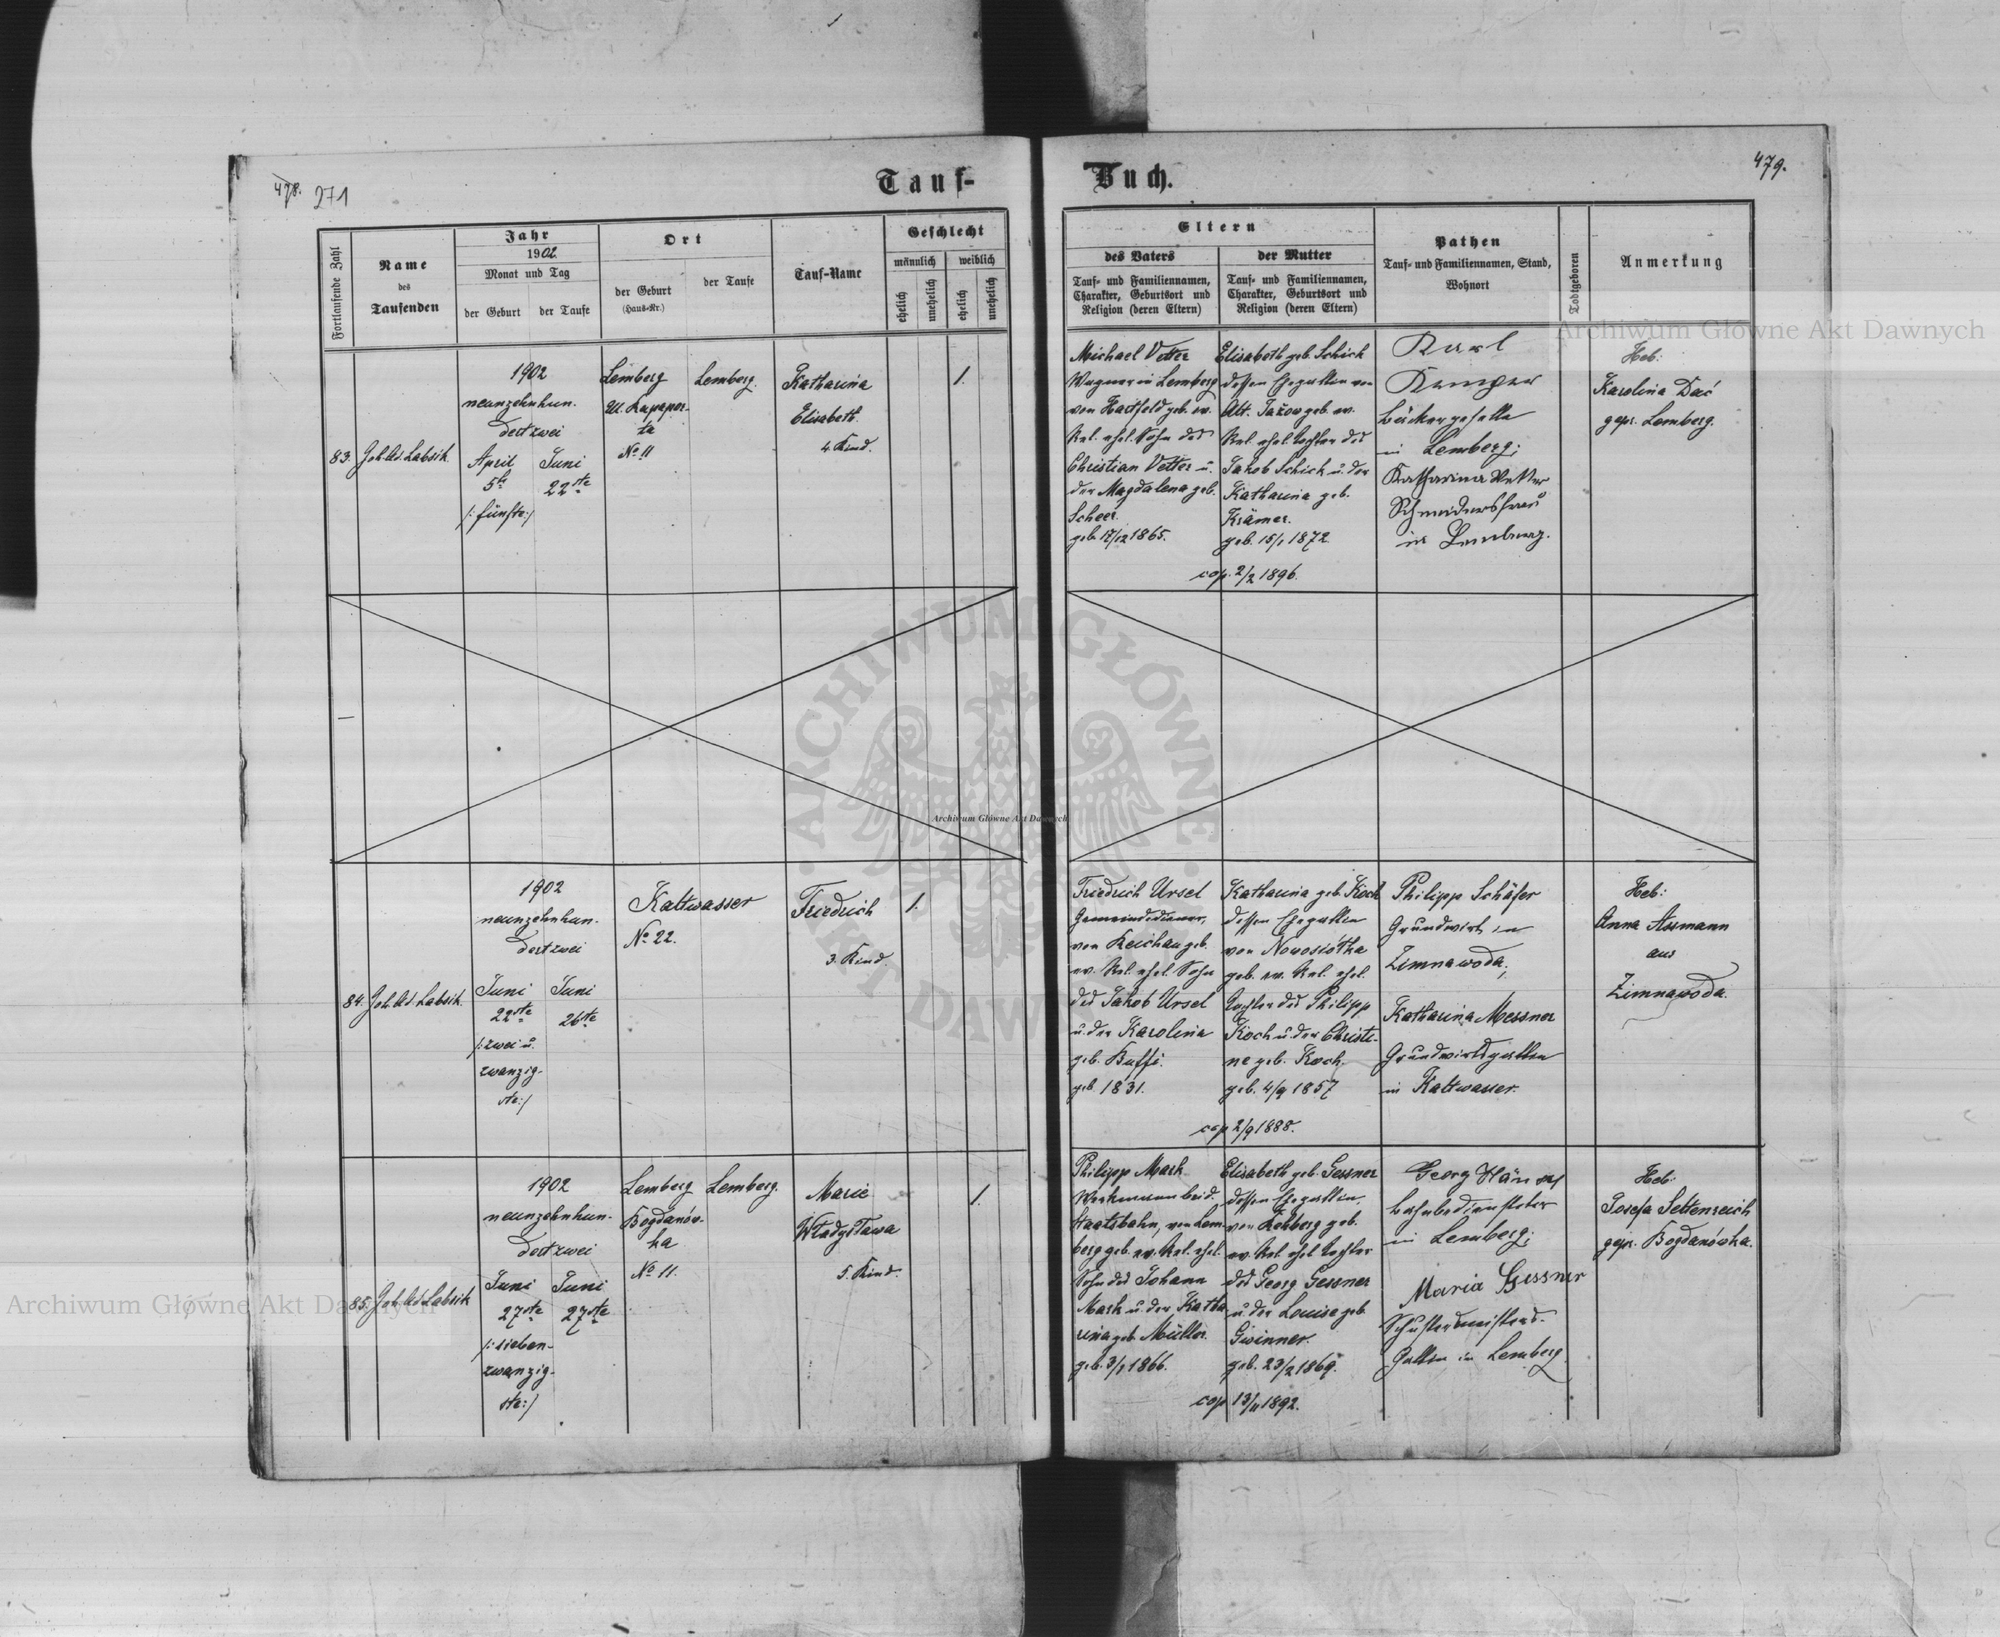 478. 271
Tauf-
Fortlaufende Zahl
Name
des
Taufenden
Jahr
1902
Monat und Tag
der Geburt
der Taufe
Ort
der Geburt
(Haus-Nr.)
der Taufe
Tauf-Name
Geschlecht
männlich
weiblich
ehelich
unehelich
ehelich
unehelich
83.
Joh. Ad. Labsik.
1902
neunzehnhun-
dertzwei
April
5te
/: fünfte :/
Juni
22ste
Lemberg
Ul. Zapapor-
ta
No 11
Lemberg.
Katharina
Elisabeth.
4. Kind.
1.
84.
Joh. Ad. Labsik
1902
neunzehnhun-
dertzwei
Juni
22ste
/: zwei u.
zwanzig-
ste :/
Juni
26ste
Kaltwasser
No 22.
Friedrich
3. Kind.
1.
85.
Joh. Ad. Labsik
1902
neunzehnhun-
dertzwei
Juni
27ste
/: sieben-
zwanzig-
ste :/
Juni
27ste
Lemberg
Bogdanów-
ka
No 11.
Lemberg.
Marie
Władysława
5. Kind.
1.
Buch.
479.
Eltern
des Vaters
Tauf- und Familiennamen,
Charakter, Geburtsort und
Religion (deren Eltern)
der Mutter
Tauf- und Familiennamen,
Charakter, Geburtsort und
Religion (deren Eltern)
Pathen
Tauf- und Familiennamen, Stand,
Wohnort
Todtgeboren
Anmerkung
Michael Vetter
Wagner in Lemberg
von Hartfeld geb. ev.
Rel. ehel. Sohn des
Christian Vetter u.
der Magdalena geb.
Scheer.
geb. 17/12 1865.
Elisabeth geb. Schick
dessen Ehegattin von
Alt. Jażow geb. ev.
Rel. ehel. Tochter des
Jakob Schick u. der
Katharina geb.
Krämer.
geb. 15/1 1872
cop. 2/2 1896.
Karl
Kemper
Bäckergeselle
in Lemberg;
Katharina Vetter
Schneidersfrau
in Lemberg.
Heb:
Karolina Dać
gepr. Lemberg.
Friedrich Ursel
Gemeindediener,
von Reichau geb.
ev. Rel. ehel. Sohn
des Jakob Ursel
u. der Karolina
geb. Buffi.
geb. 1831.
Katharina geb. Koch
dessen Ehegattin
von Nowosiołka
geb. ev. Rel. ehel.
Tochter des Philipp
Koch u. der Christi-
ne geb. Koch
geb. 4/9 1857
cop 2/9 1888.
Philipp Schäfer
Grundwirt in
Zimnawoda;
Katharina Messner
Grundwirtsgattin
in Kaltwasser.
Heb:
Anna Assmann
aus
Zimnawoda.
Philipp Mark
Werkmann bei d.
Staatsbahn, von Lem-
berg geb. ev. Rel. ehel.
Sohn des Johann
Mark u. der Katha-
rina geb. Müller.
geb. 3/1 1866.
Elisabeth geb. Gessner
dessen Ehegattin
von Rehberg geb.
ev. Rel. ehel. Tochter
des Georg Gessner
u. der Louise geb.
Gwinner.
geb. 23/2 1869.
cop 13/11 1892.
Georg
Bahnbediensteter
in Lemberg;
Maria Gessner
Schustermeisters-
Gattin in Lemberg
Heb:
Josefa Settenreich
gepr. Bogdanówka.
Archiwum Główne Akt Dawnych
Archiwum Główne Akt Dawnych
Archiwum Główne Akt Dawnych
ARCHIWUM GŁÓWNE AKT DAWNYCH